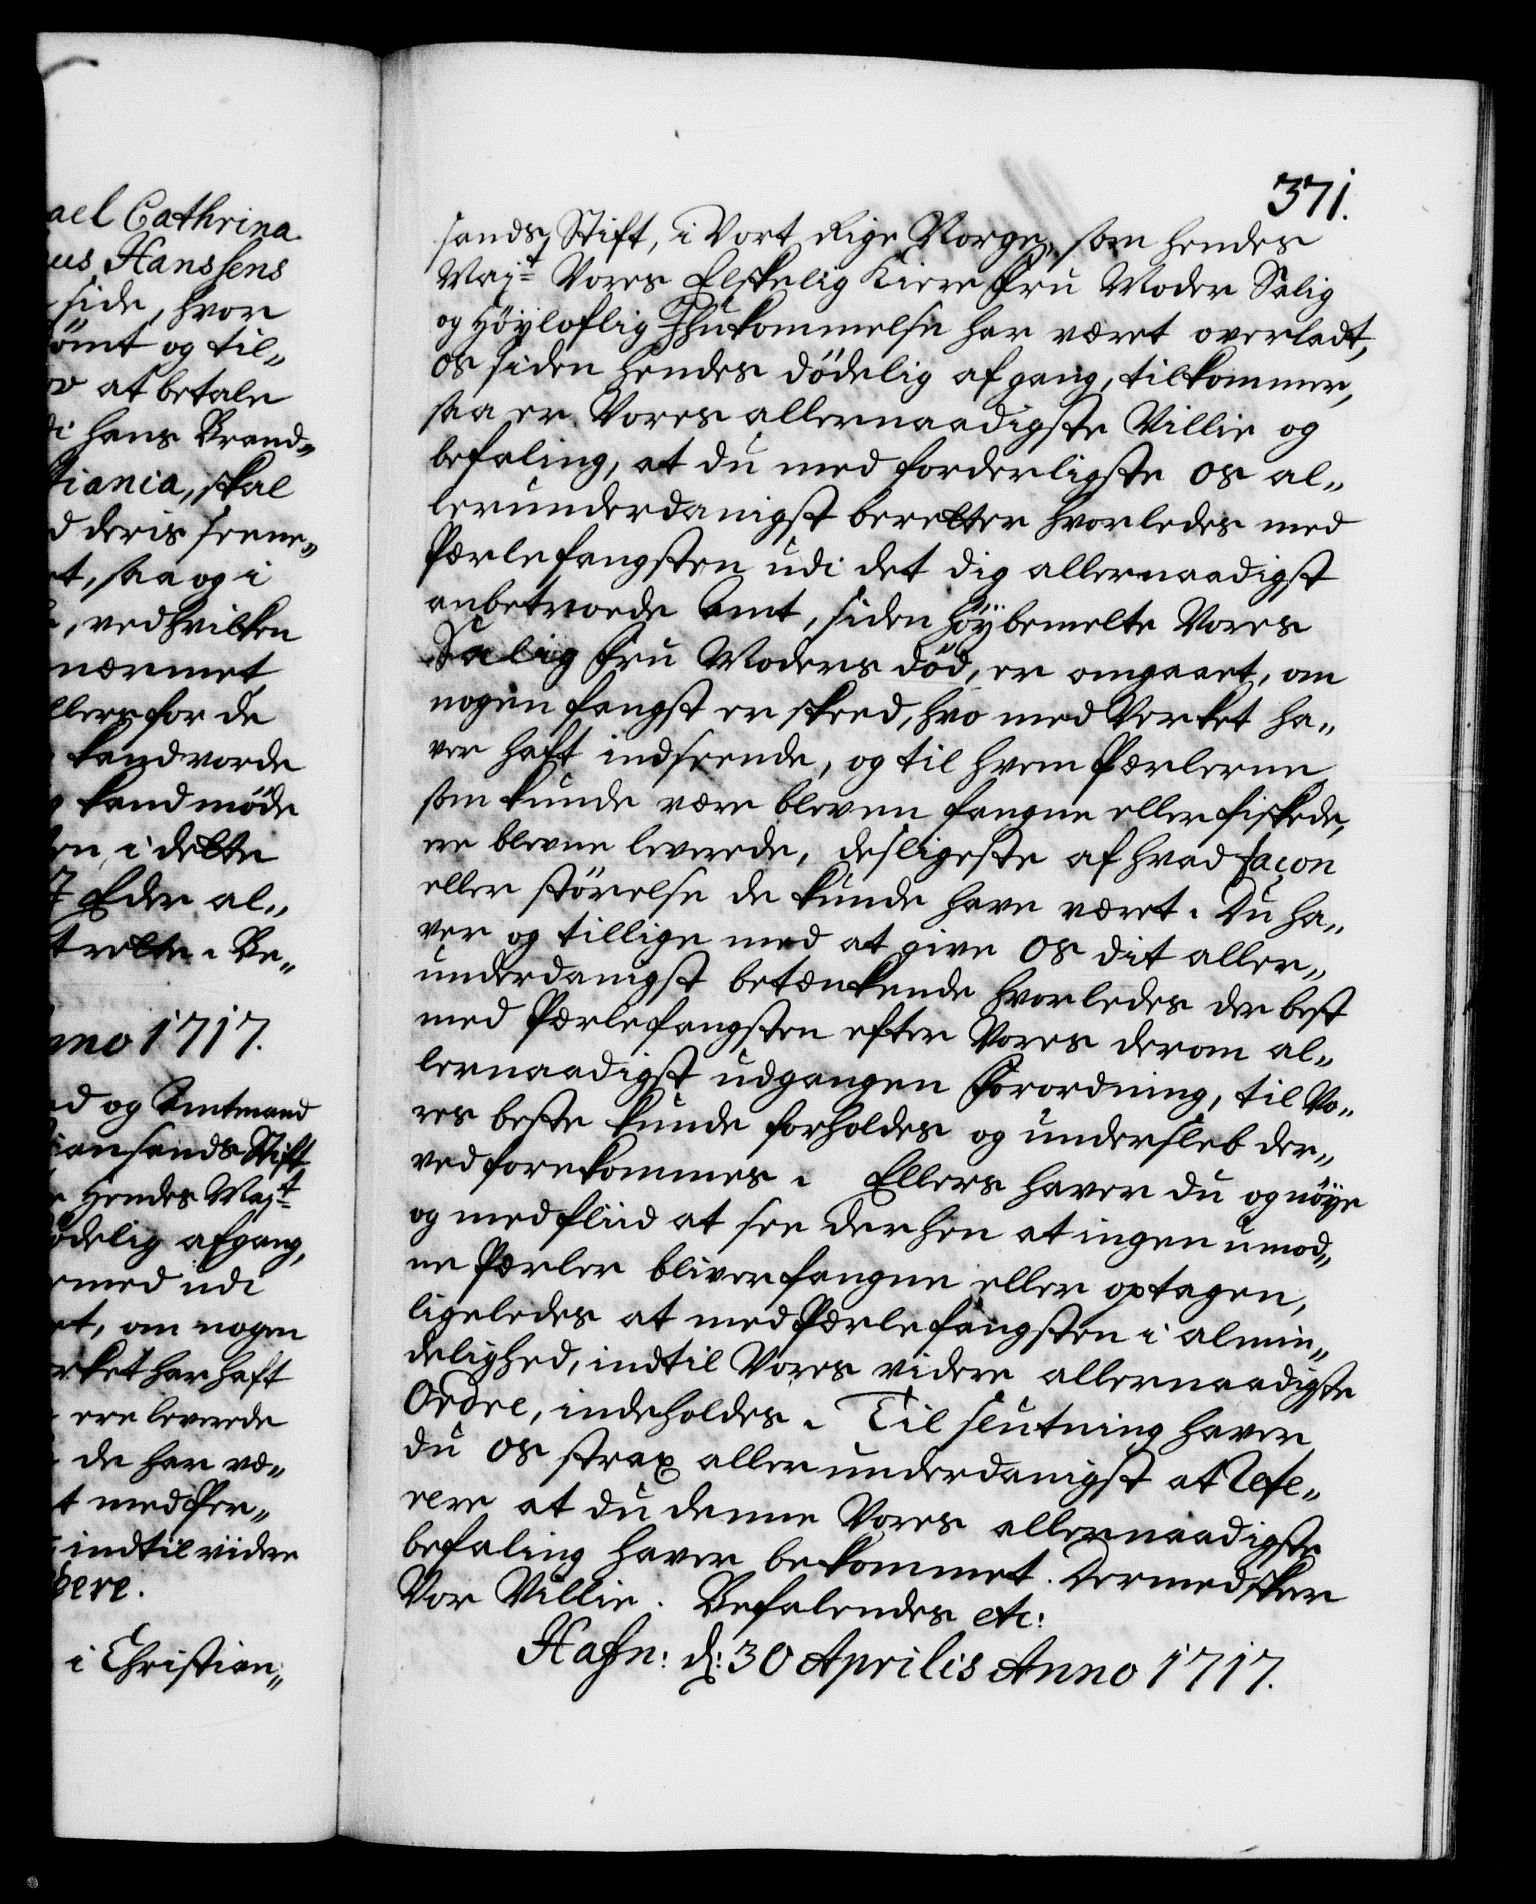 ael Cathrina
us Hanssens
side, hvor
ömt og til„
at betale
i hans Brand„
tiania, skal
d deris seene„
t, saa og i
, ved hvilken
nærmet
llers for de
kand vorde
kand möde
en i dette
Eder al„
t rette. Be„
nno 1717.
d og Amtmand
iansands Stift
Hendes Majt
ödelig afgang,
med udi
et, om nogen
rket har haft
ere leverede
de har væ„
t med Per„
indtil videre
dere.
i Christian„
371.
sands Stift, i Vort Rige Norge, som hendes
Majt Vores Elskelig Kiere Fru Moder Salig
og Höyloflig Ihukommelse har været overladt,
os siden hendes dödelig afgang, tilkommer,
saa er Vores allernaadigste Villie og
befaling, at du med forderligste os al„
lerunderdanigst beretter hvorledes med
Pærlefangsten udi det dig allernaadigst
anbetroede Amt, siden höybemelte Vores
Salig Fru Moders död, er omgaaet, om
nogen fangst er skeed, hvo med Verket ha„
ver haft indseende, og til hvem Pærlerne
som kunde være bleven fangne eller fiskede,
ere blevne leverede, desligeste af hvad façon
eller störelse de kunde have været. Du ha„
ver og tillige med at give os dit aller„
underdanigst betænkende hvorledes der best
med Pærlefangsten efter Vores derom al„
lernaadigst udgangen Forordning, til Vo„
res beste kunde forholdes og undersleb der„
ved forekommes. Ellers haver du og nöye
og med fliid at see derhen at ingen umod„
ne Pærler bliver fangne eller optagen,
ligeledes at med Pærlefangsten i almin„
delighed, indtil Vores videre allernaadigste
Ordre, indeholdes. Til slutning haver
du os strax allerunderdanigst at Refe„
rere at du denne Vores allernaadigste
befaling haver bekommet. Dermed skeer
Vor Villie. Befalendes etc:
Hafn: d: 30 Aprilis Anno 1717.